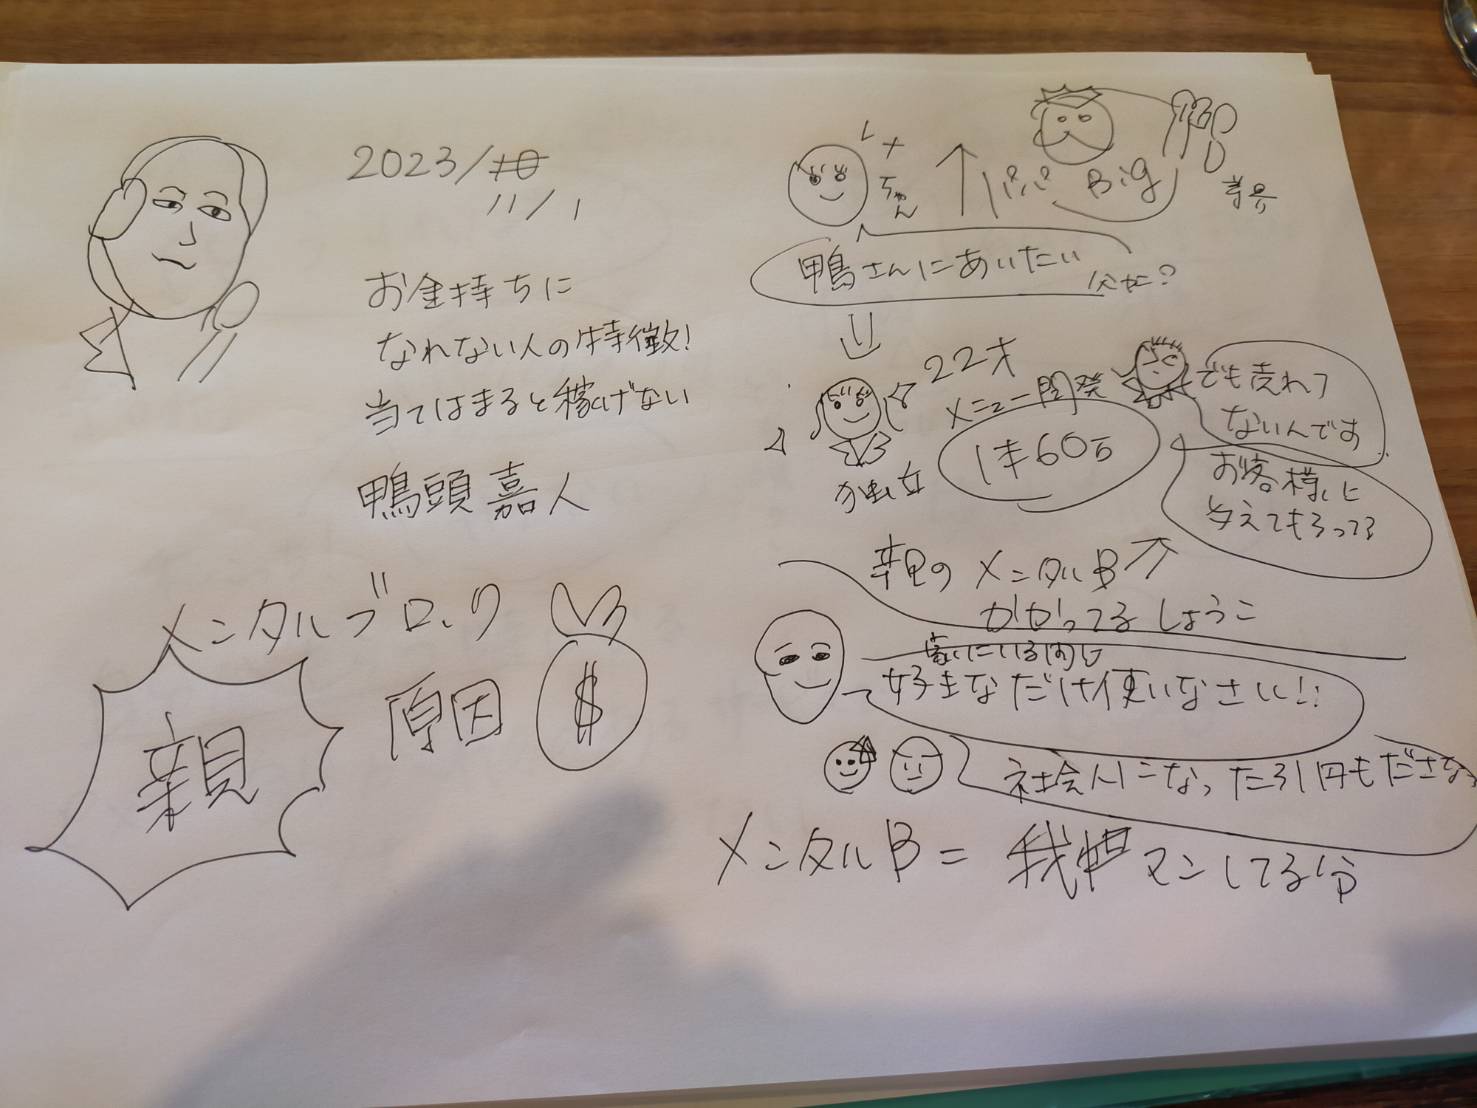 2023/10
11/1
お金持ちに
なれない人の特徴!
当てはまると稼げない
鴨頭嘉人
メンタルブロック
原因
$
親
レナ
ちゃん
パパ Big
鴨さんにあいたい
22才
メニュー開発
1本60万
独立
でも売れて
ないんです
お客様に
与えてもらってる
親のメンタルB
かかってるしょうこ
家にいる内は
好きなだけ使いなさい!!
社会人になったら1円もださな
メンタルB = 我慢マンしてる分